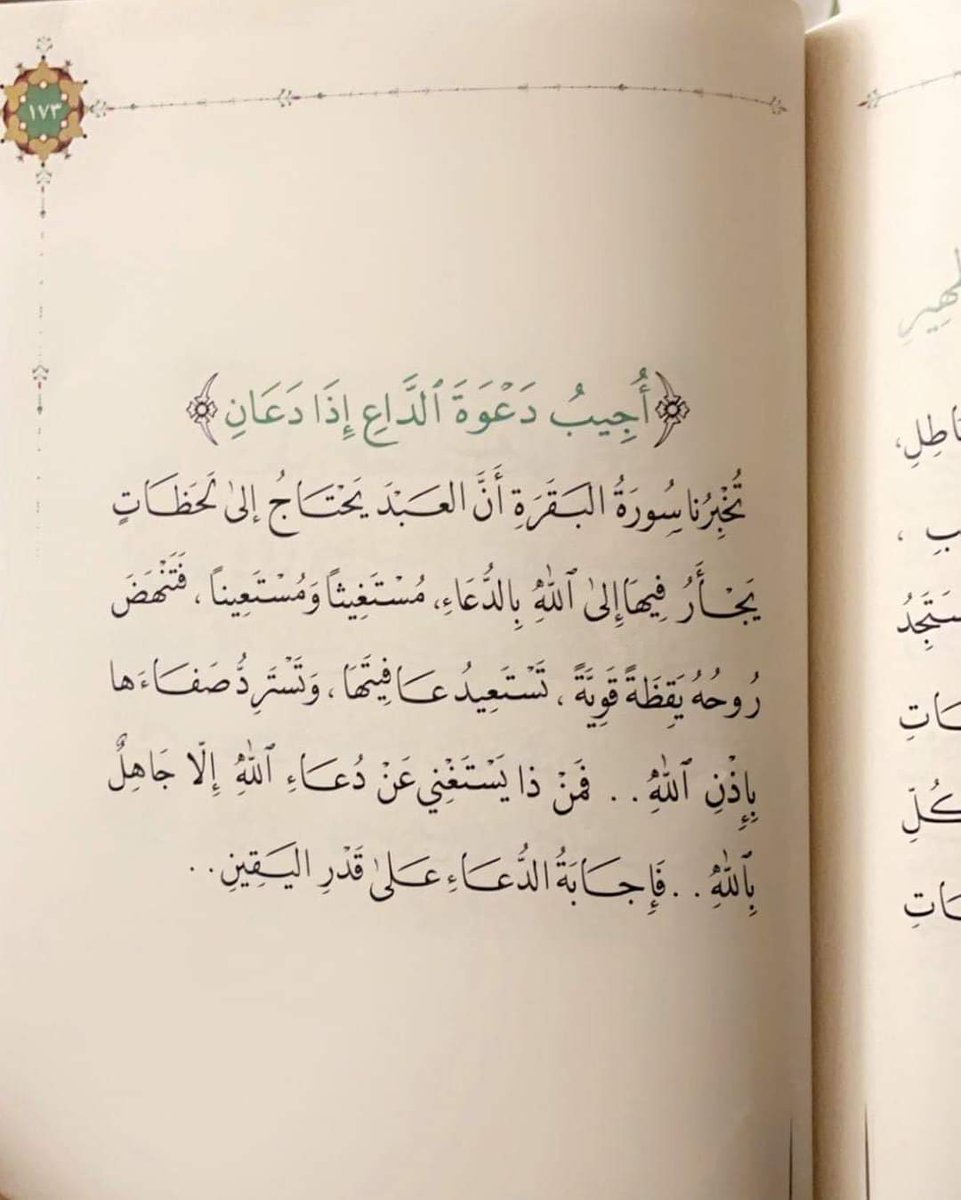 ١٧٣
﴿أُجِيبُ دَعْوَةَ ٱلدَّاعِ إِذَا دَعَانِ﴾
تُخْبِرُنا سِورَةُ البَقَرَةِ أَنَّ العَبْدَ يَحْتَاجُ إلىٰ لَحَظَاتٍ
يَجْأَرُ فِيهَا إِلىٰ ٱللهِ بِالدُّعَاءِ، مُسْتَغِيثاً وَمُسْتَعِيناً، فَتَنْهَضَ
رُوحُهُ يَقِظَةً قَوِيَّةً، تَسْتَعِيدُ عَافِيتَهَا، وَتَسْتَرِدُّ صَفَاءَها
بِإِذْنِ ٱللهِ.. فَمَنْ ذا يَسْتَغْنِي عَنْ دُعَاءِ ٱللهِ إِلّا جَاهِلٌ
بِٱللهِ.. فَإِجَابَةُ الدُّعَاءِ عَلىٰ قَدْرِ اليَقِينِ..
هِيرِ
اطِلِ،
بِ،
سَتَجِدُ
اتِ
كُلِّ
اتِ